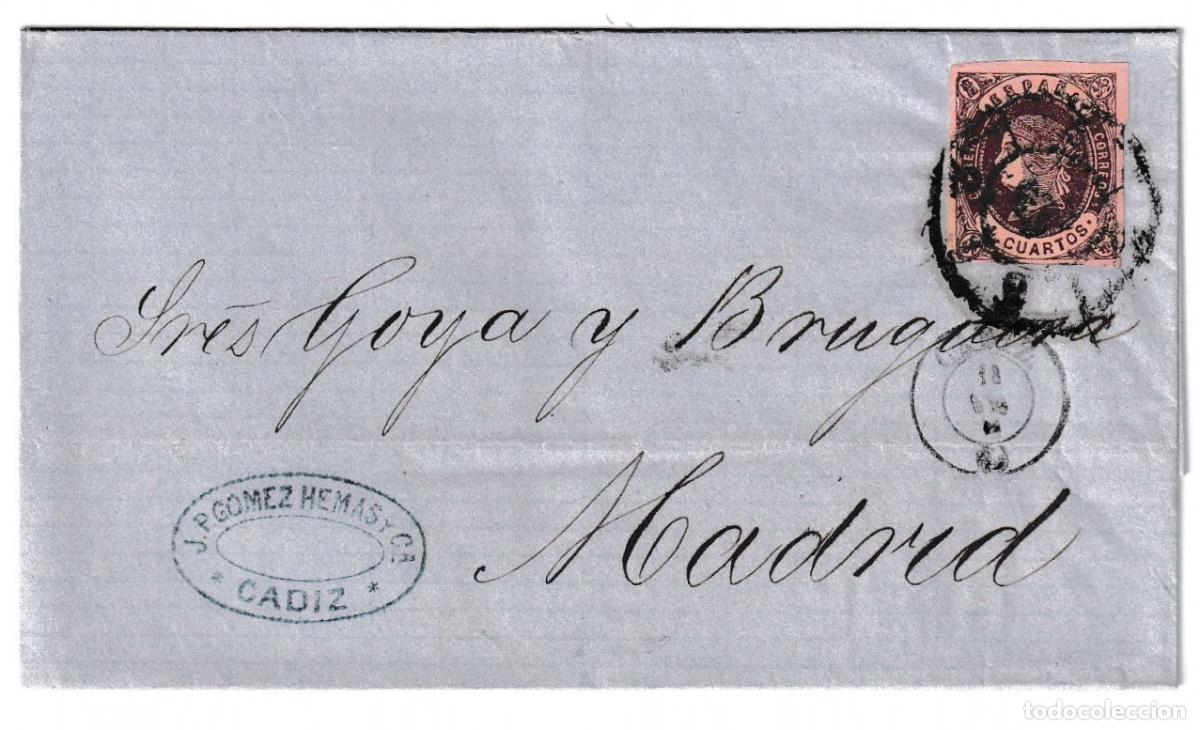 ESPAÑA
CORREOS
4 CUARTOS.
Sres Goya y Bruguera
18
Madrid
J. P. GOMEZ HEMAS Y Ca
* CADIZ *
todocoleccion